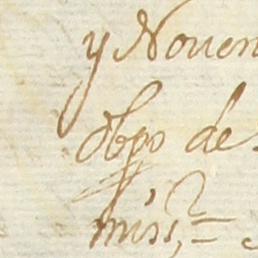 y Noven
obpo de
miss,=